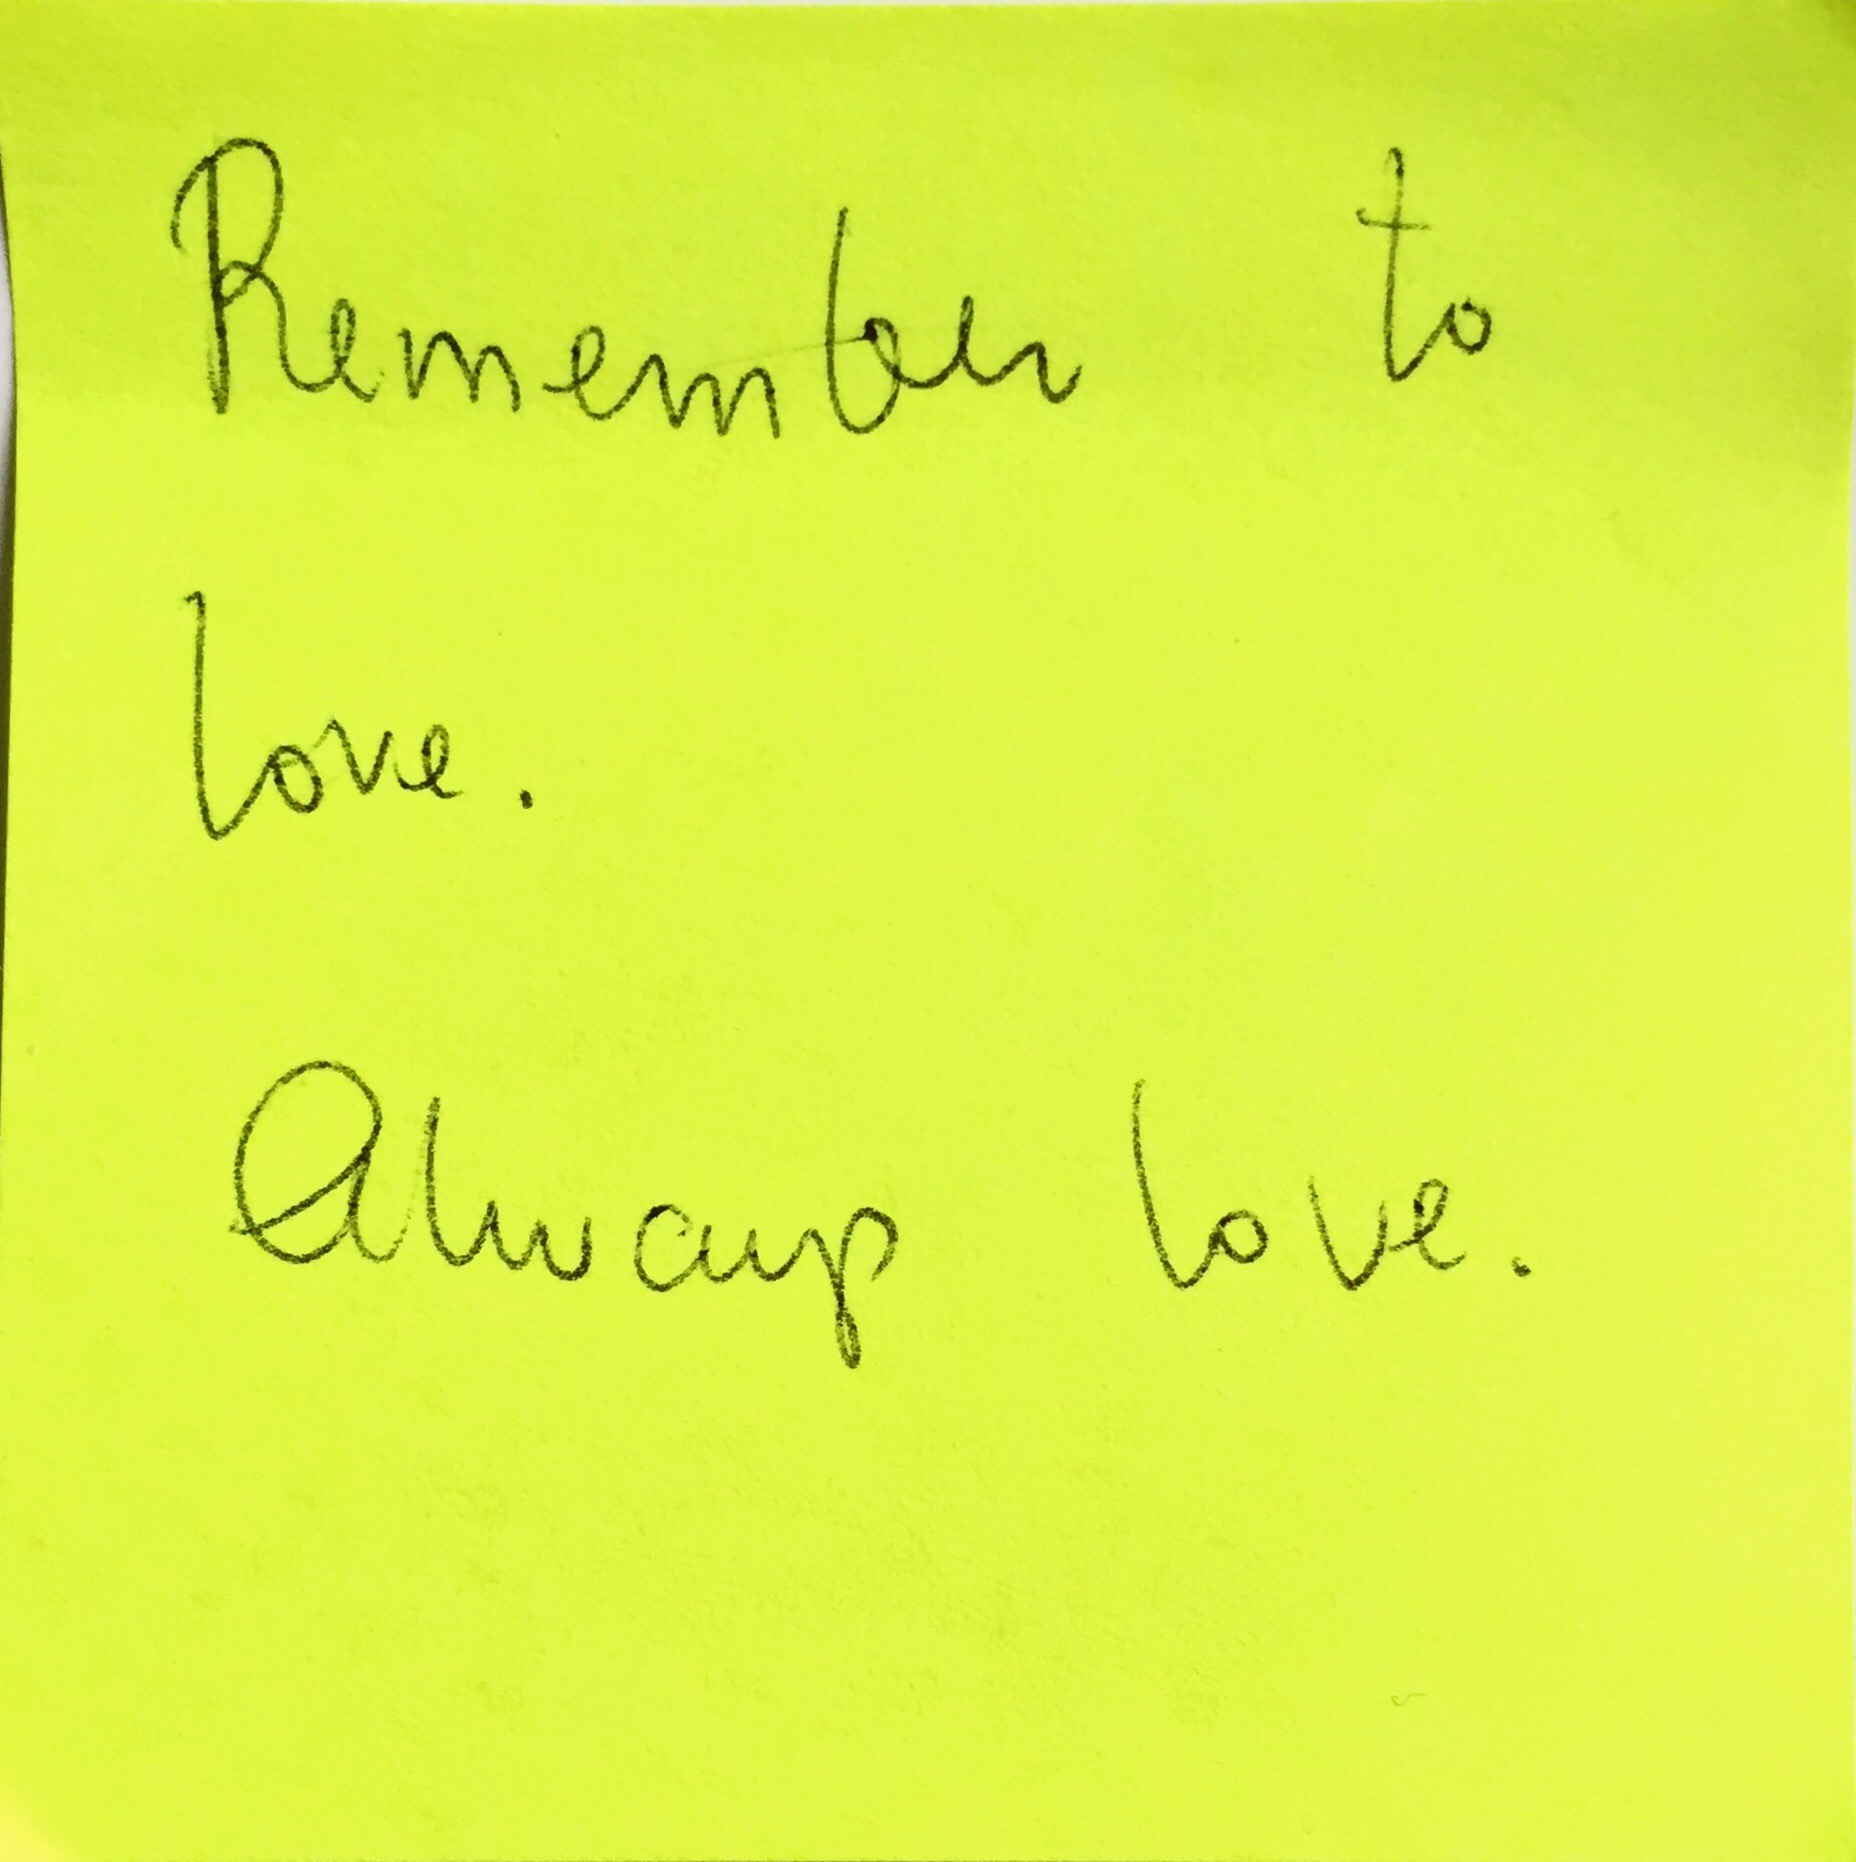 Remember to
love.
Always love.